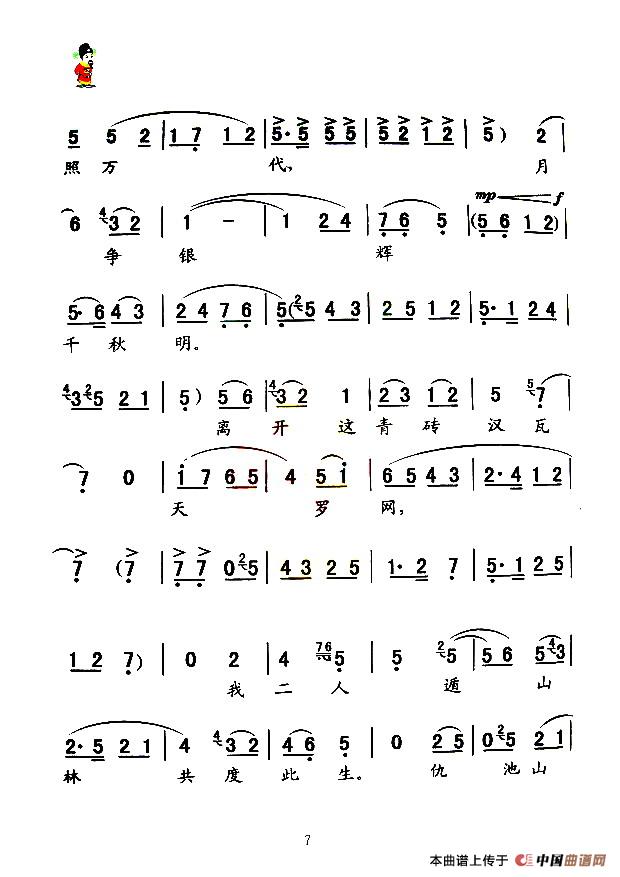 5 5 2 | 1 7 1 2 | 5· 5 5 5 | 5 2 1 2 | 5 ) 2 |
照 万 代, 月
mp f
6 4 3 2 | 1 - | 1 2 4 | 7 6 5 | ( 5 6 1 2 |
争 银 辉
5· 6 4 3 | 2 4 7 6 | 5 ( 2 5 4 3 | 2 5 1 2 | 5· 1 2 4 |
千 秋 明。
4 3 2 5 2 1 | 5 ) 5 6 | 4 3 2 1 | 2 3 1 2 | 5 5 7 |
离 开 这 青 砖 汉 瓦
7 0 | i 7 6 5 | 4 5 i | 6 5 4 3 | 2· 4 1 2 |
天 罗 网,
7 ( 7 | 7 7 0 2 5 | 4 3 2 5 | 1· 2 7 | 5· 1 2 5 |
1 2 7 ) | 0 2 | 4 76 5 | 5 2 5 | 5 6 5 4 3 |
我 二 人 遁 山
2· 5 2 1 | 4 4 3 2 | 4 6 5 | 0 2 5 | 0 2 5 2 1 |
林 共 度 此 生。 仇 池 山
7
本曲谱上传于 中国曲谱网